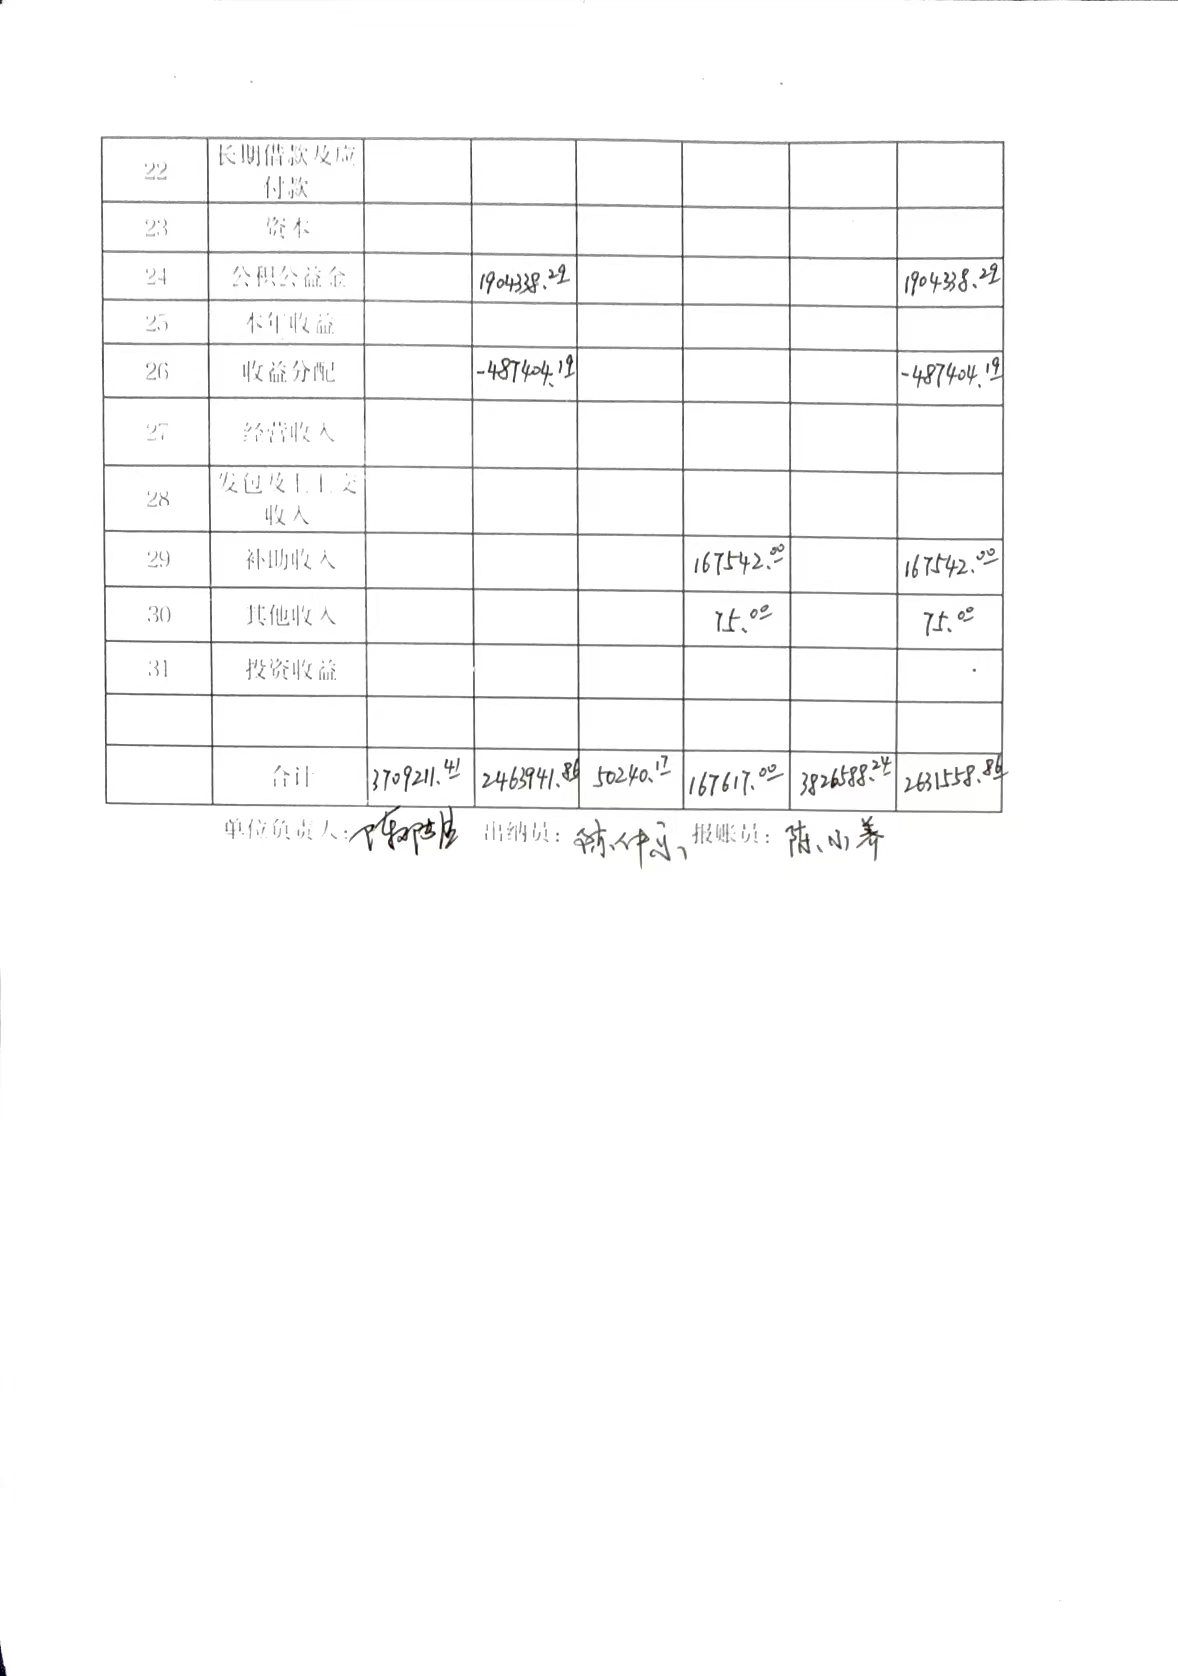 22 长期借款及应
付款
23 资本
24 公积公益金 1904338.29 1904338.29
25 本年收益
26 收益分配 -487404.19 -487404.19
27 经营收入
28 发包及上上交
收入
29 补助收入 167542.00 167542.00
30 其他收入 75.00 75.00
31 投资收益
合计 3709211.41 2463941.86 50240.17 167617.00 3826588.24 2631558.86
单位负责人: 出纳员: 报账员: 陈小养